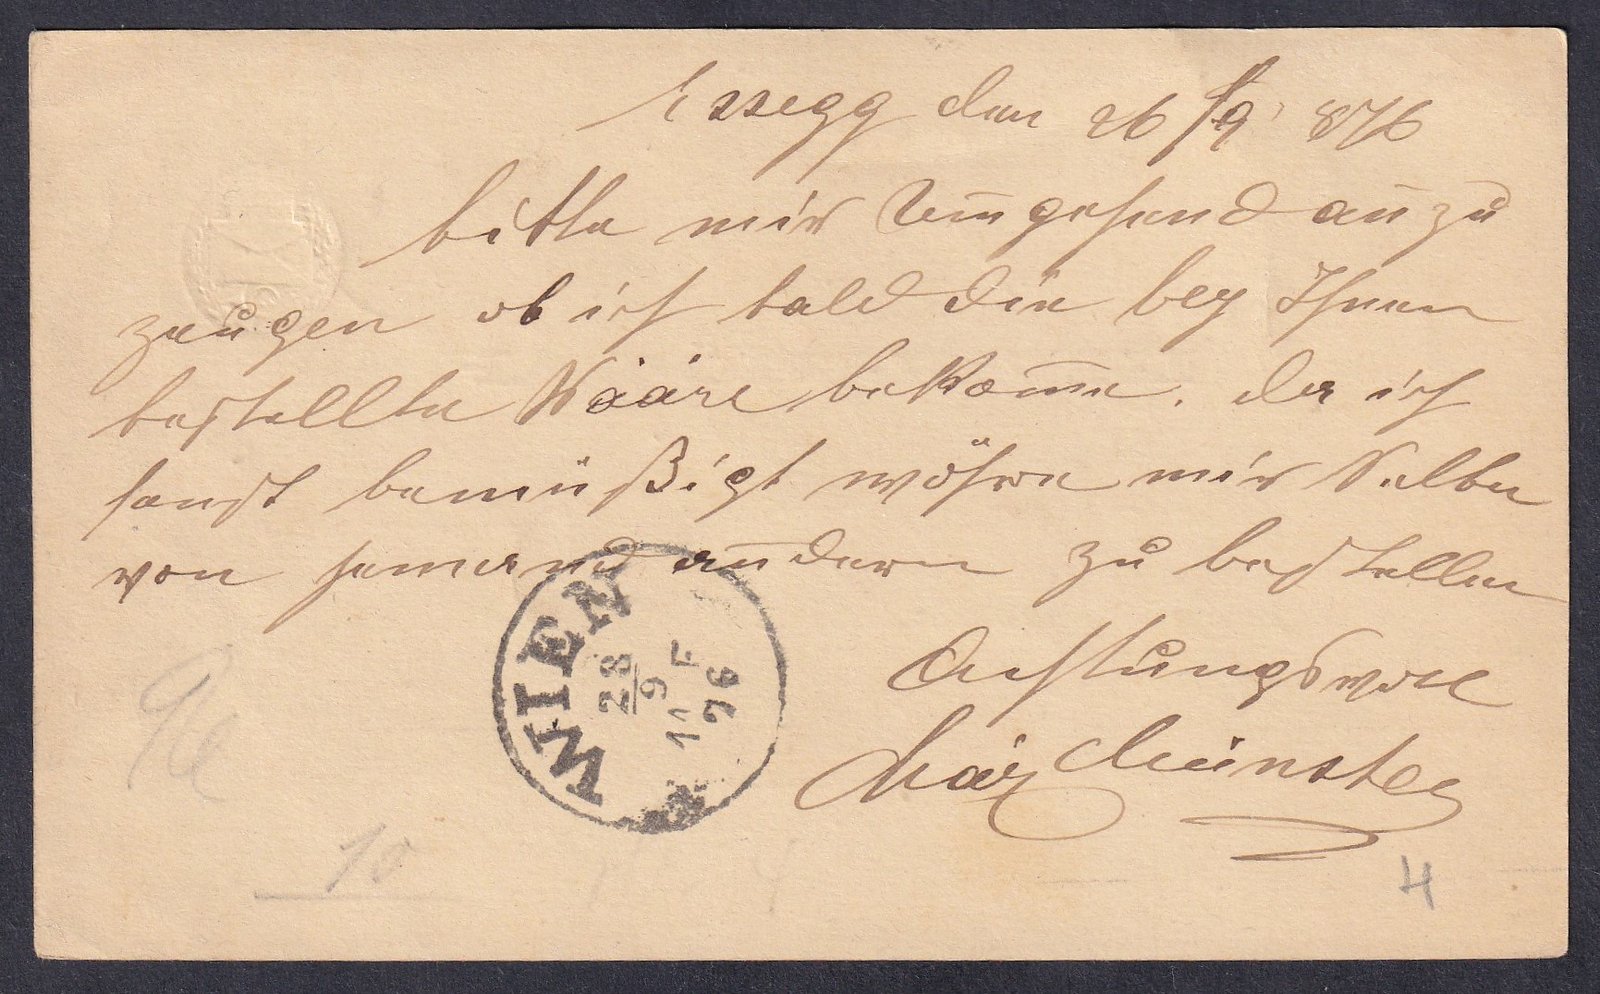 Essegg den 26/9 876
bitte mir Umgehend anzu
zeugen ob ich bald die bey Ihnen
bestellte Wääre bekome. da ich
sonst bemüßigt wöhre mir Selbe
von jemand andern zu bestellen
Achtungsvoll
Max Münster
WIEN
28
9
11 F
76
10
4